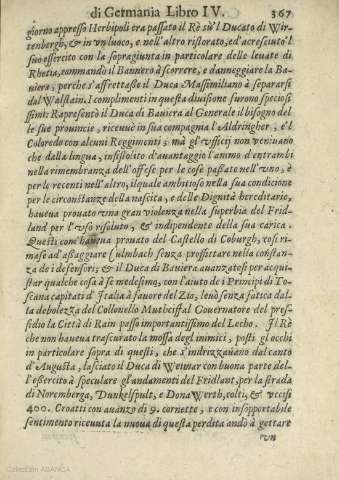 di Germania Libro IV. 367
giorno appresso Herbipoli era passato il Rè sù'l Ducato di Wir-
tenbergh, & in vn luoco, e nell'altro ristorato, ed'acresciuto'l
suo essercito con la sopragiunta in particolare delle leuate di
Rhetia, commandò il Bannero à scorrere, e danneggiare la Ba-
uiera, perche s'affrettasse il Duca Massimiliano à separarsi
dal Walstain. I complimenti in questa diuisione furono speciosi
ssimi: Rapresentò il Duca di Bauiera al Generale il bisogno del
le sue prouincie, riceuuè in sua compagnia l'Aldringher, e'l
Coloredo con alcuni Reggimenti; mà gl'vfficij non veniuano
che dalla lingua, infistolito d'auantaggio l'animo d'entrambi
nella rimembranza dell'offese per le cose passate nell'vno, è
per le recenti nell'altro, ilquale ambitioso nella sua condicione
per le circonstanze della nascita, e delle Dignità hereditarie,
haueua prouato vna gran violenza nella superbia del Frid-
land per l'vso risoluto, & independente della sua carica.
Questi com'haueua prouato del Castello di Coburgh, cosi ri-
mase ad'assaggiare Culmbach senza profittare nella constan-
za de i defensori; & il Duca di Bauiera auanzatosi per acqui-
star qualche cosa à se medesimo, con l'aiuto de i Principi di To-
scana capitati d'Italia à fauore del Zio, leuò senza fatica dal-
la debolezza del Collonello Muthciff al Gouernatore del pre-
sidio la Città di Rain passo importantissimo del Lecho. Il Rè
che non haueua trascurato la mossa degl'inimici, posti gl'occhi
in particolare sopra di questi, che s'indrizzauano dal canto
d'Augusta, lasciato il Duca di Weimar con buona parte del-
l'essercito à speculare gl'andamenti del Fridlant, per la strada
di Noremberga, Dunkelspult, e Dona Werth, colti, & vccisi
400. Croatti con auanzo di 9. cornette, e con insopportabile
sentimento riceuuta la nuoua di questa perdita andò à gettare
vn
Colección ABANCA